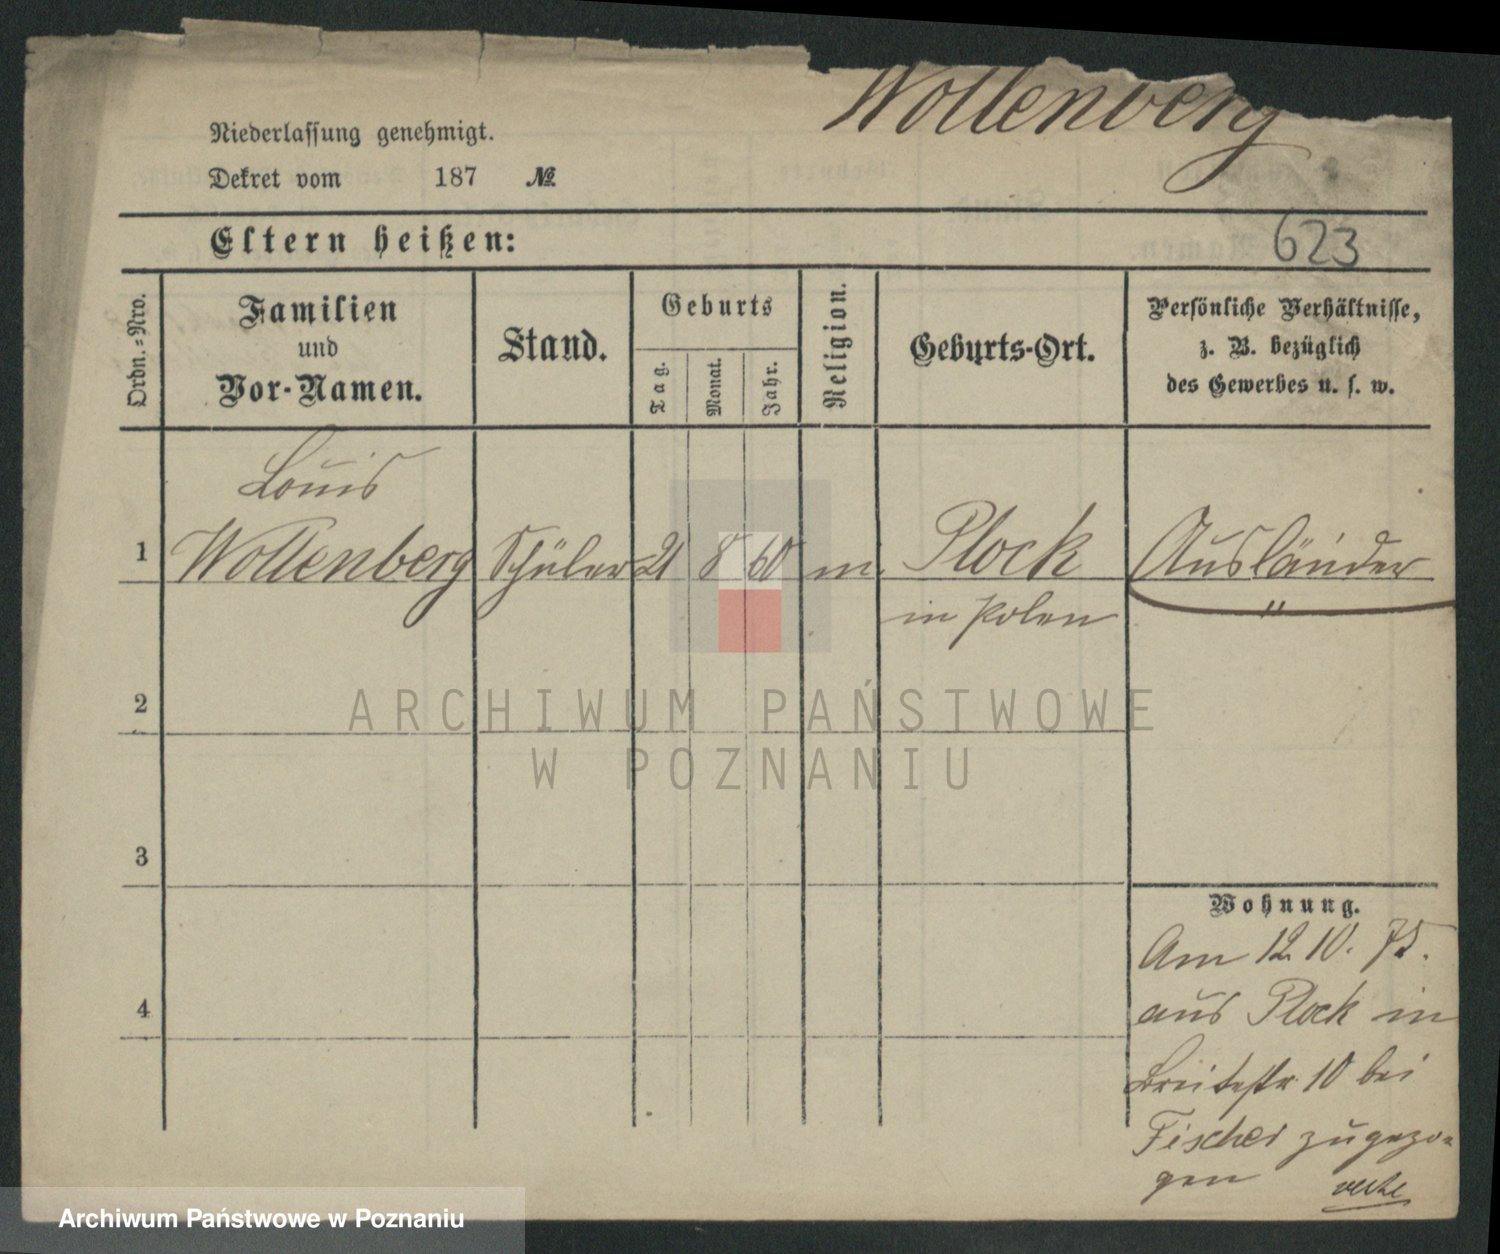 Wollenberg
Niederlassung genehmigt.
Dekret vom 187 №
Eltern heißen:
623
Ordn.-Nro.
Familien
und
Vor-Namen.
Stand.
Geburts
Tag.
Monat.
Jahr.
Religion.
Geburts-Ort.
Persönliche Verhältnisse,
z. B. bezüglich
des Gewerbes u. s. w.
Louis
1 Wollenberg Schüler 21 8 60 m. Plock Ausländer
in Polen "
2
3
4
Wohnung.
Am 12 10. 75.
aus Plock in
Breitestr. 10 bei
Fischer zugezo-
gen
ARCHIWUM PAŃSTWOWE
W POZNANIU
Archiwum Państwowe w Poznaniu